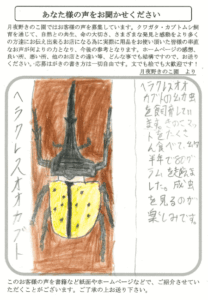 あなた様の声をお聞かせください
月夜野きのこ園ではお客様の声を募集しています。クワガタ・カブトムシ飼
育を通じて、自然との共生、命の大切さ、さまざまな発見と感動をより多く
の方達にお伝え出来るお店になる為に実際に用品をお使い頂いた皆様の率直
なお声が何よりの力となり、今後の参考となります。ホームページの感想、
良い所、悪い所、他のお店との違い等、どんな事でも結構ですので、お送り
ください。応募はがきの書き方は一切自由です。文でも絵でも大歓迎です！
月夜野きのこ園 より
ヘラクレスオオカブト
ヘラクレスオオ
カブトの幼虫
を飼育してい
ます。
ん食べて、
半年で80グ
ラムを
した。成虫
を見るのが
楽しみです。
このお客様の声を書籍など紙面やホームページなどで、ご紹介させていた
だくことがございます。ご了承の上お送り下さい。